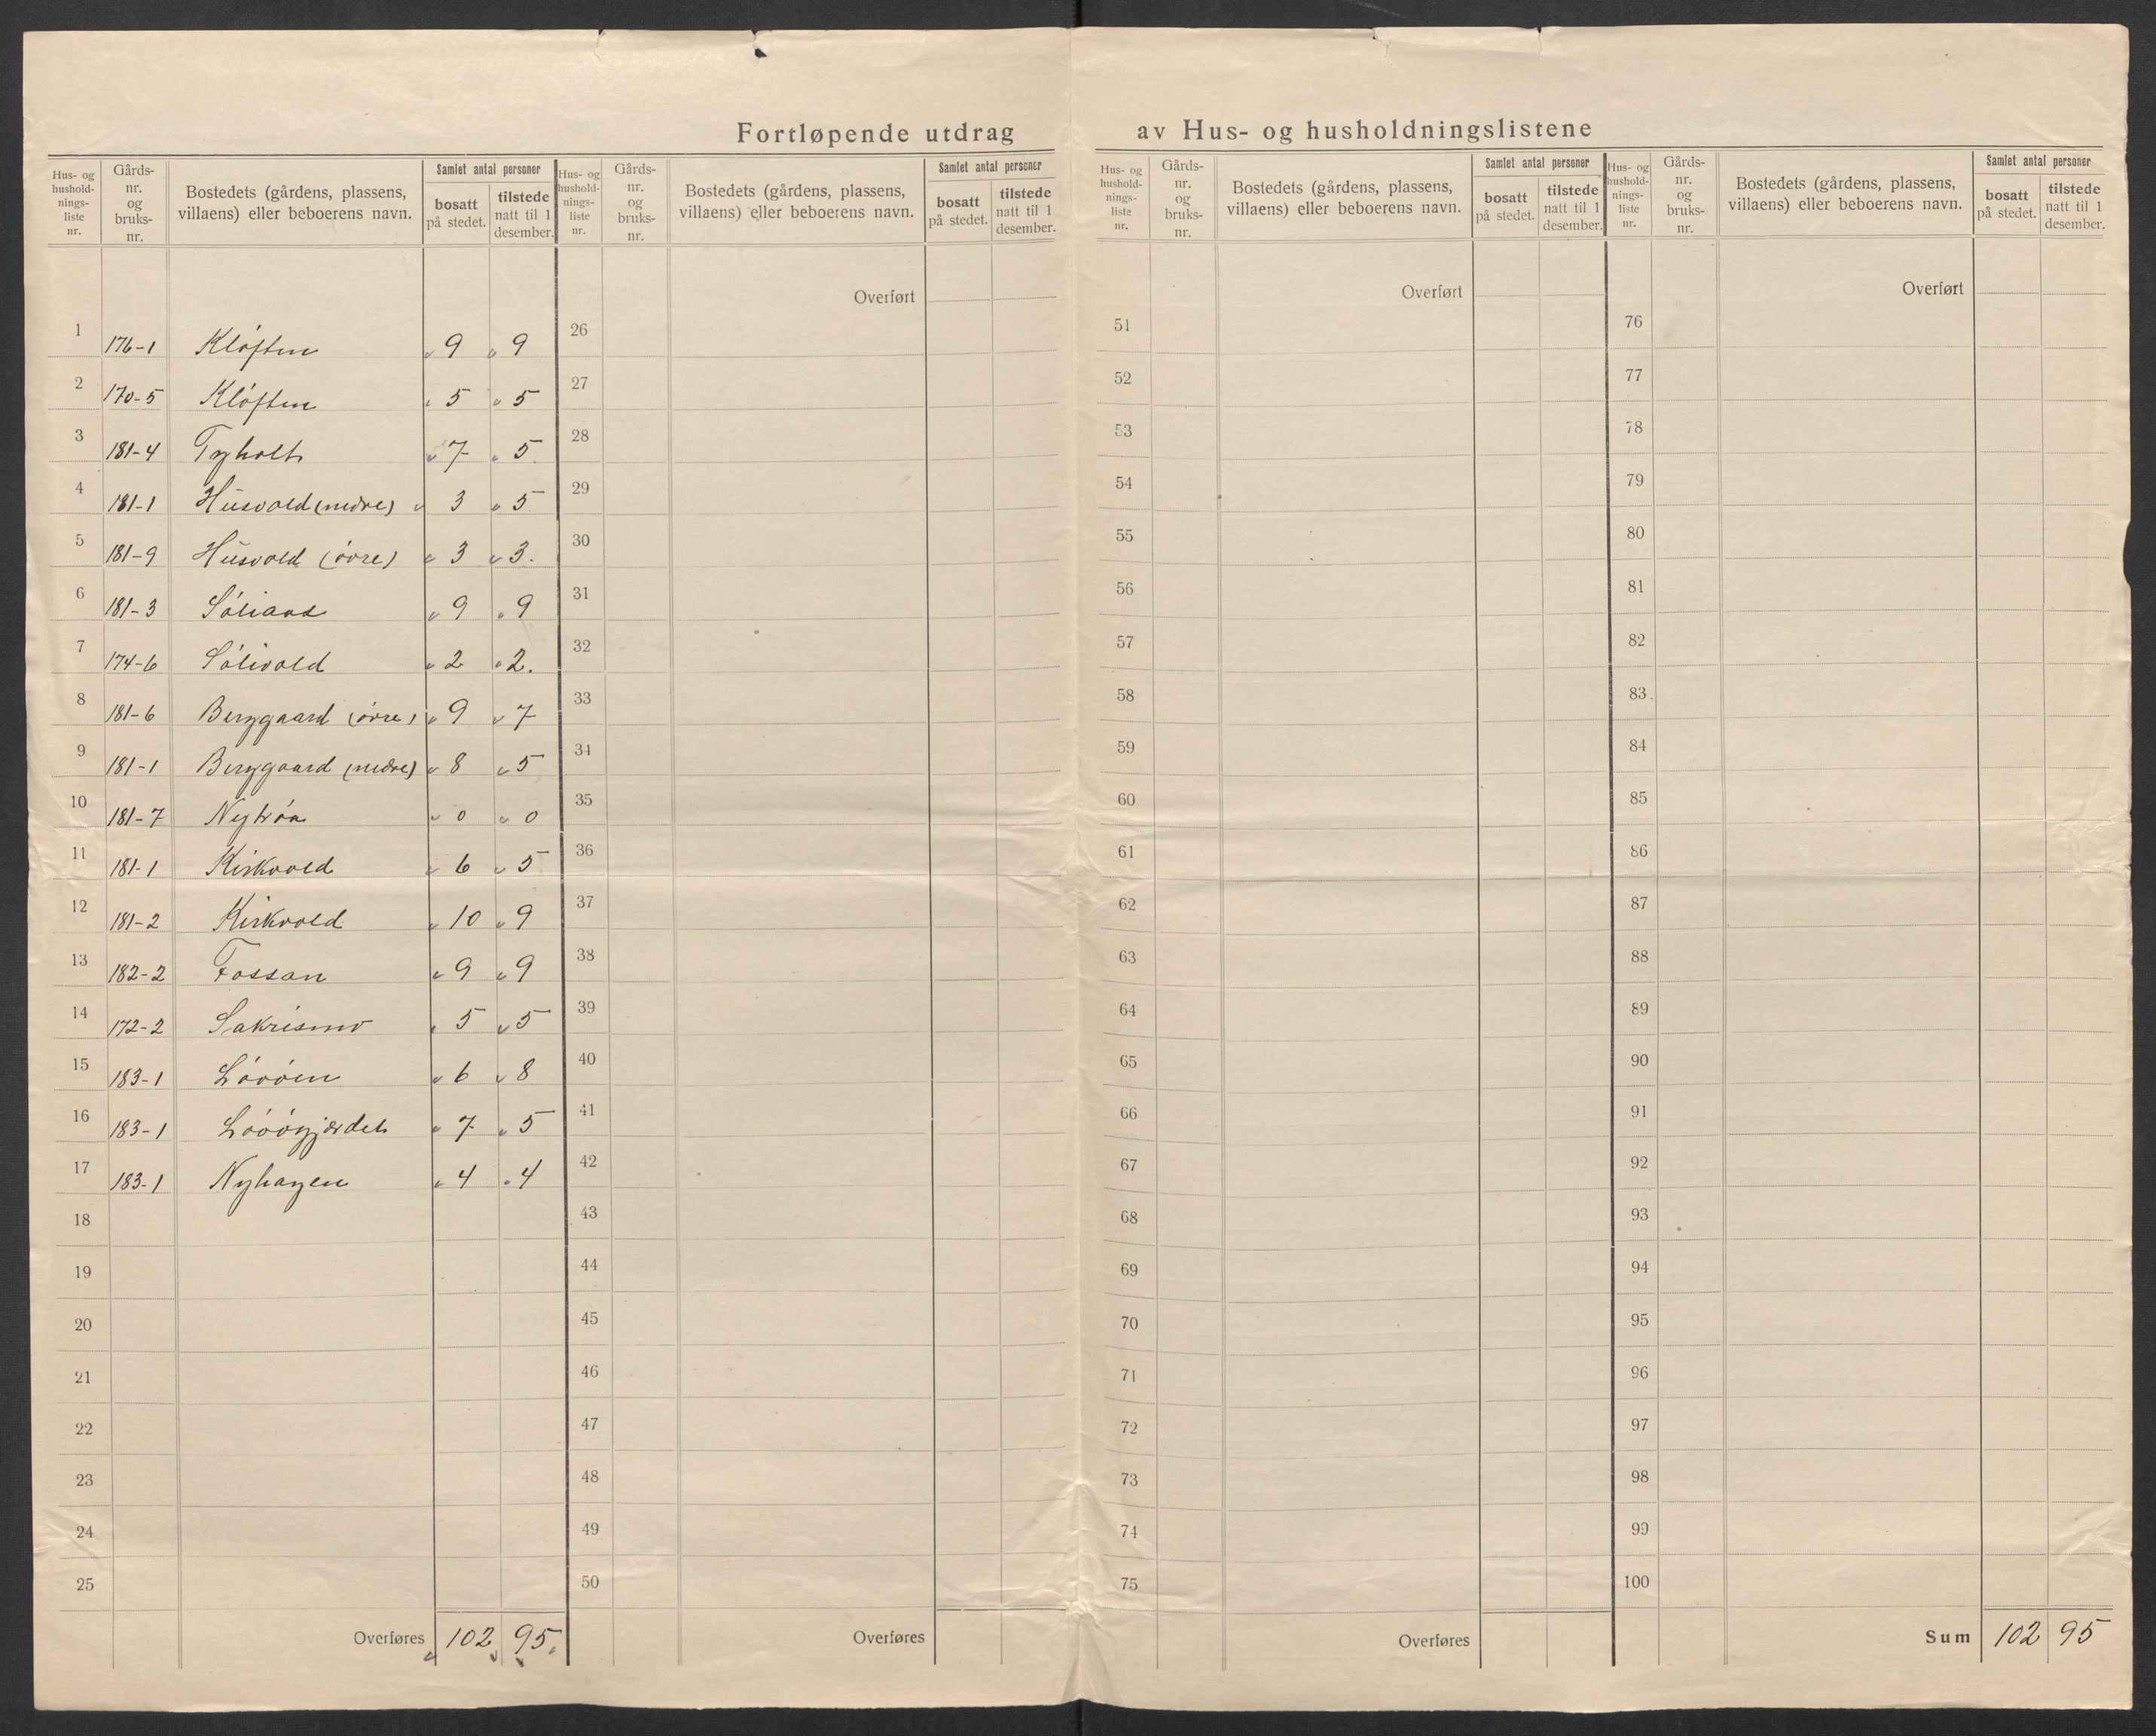 Fortløpende utdrag av Hus- og husholdningslistene
Hus- og hushold-nings-liste nr. Gårds-nr. og bruks-nr. Bostedets (gårdens, plassens, villaens) eller beboerens navn. Samlet antal personer bosatt på stedet. tilstede natt til 1 desember.
1 176-1 Kløften 9 9
2 170-5 Kløften 5 5
3 181-4 Tyholt 7 5
4 181-1 Husvold (nedre) 3 5
5 181-9 Husvold (øvre) 3 3.
6 181-3 9 9
7 174-6 Sølivold 2 2.
8 181-6 Berggaard (øvre) 9 7
9 181-1 Berggaard (nedre) 8 5
10 181-7 Nytrøa 0 0
11 181-1 Kirkvold 6 5
12 181-2 Kirkvold 10 9
13 182-2 Fossan 9 9
14 172-2 Sakrismo 5 5
15 183-1 Løvøen 6 8
16 183-1 Løvøgjerdet 7 5
17 183-1 Nyhagen 4 4
18
19
20
21
22
23
24
25
Overføres 102 95.
Hus- og hushold-nings-liste nr. Gårds-nr. og bruks-nr. Bostedets (gårdens, plassens, villaens) eller beboerens navn. Samlet antal personer bosatt på stedet. tilstede natt til 1 desember.
Overført
26
27
28
29
30
31
32
33
34
35
36
37
38
39
40
41
42
43
44
45
46
47
48
49
50
Overføres
Hus- og hushold-nings-liste nr. Gårds-nr. og bruks-nr. Bostedets (gårdens, plassens, villaens) eller beboerens navn. Samlet antal personer bosatt på stedet. tilstede natt til 1 desember.
Overført
51
52
53
54
55
56
57
58
59
60
61
62
63
64
65
66
67
68
69
70
71
72
73
74
75
Overføres
Hus- og hushold-nings-liste nr. Gårds-nr. og bruks-nr. Bostedets (gårdens, plassens, villaens) eller beboerens navn. Samlet antal personer bosatt på stedet. tilstede natt til 1 desember.
Overført
76
77
78
79
80
81
82
83
84
85
86
87
88
89
90
91
92
93
94
95
96
97
98
99
100
Sum 102 95